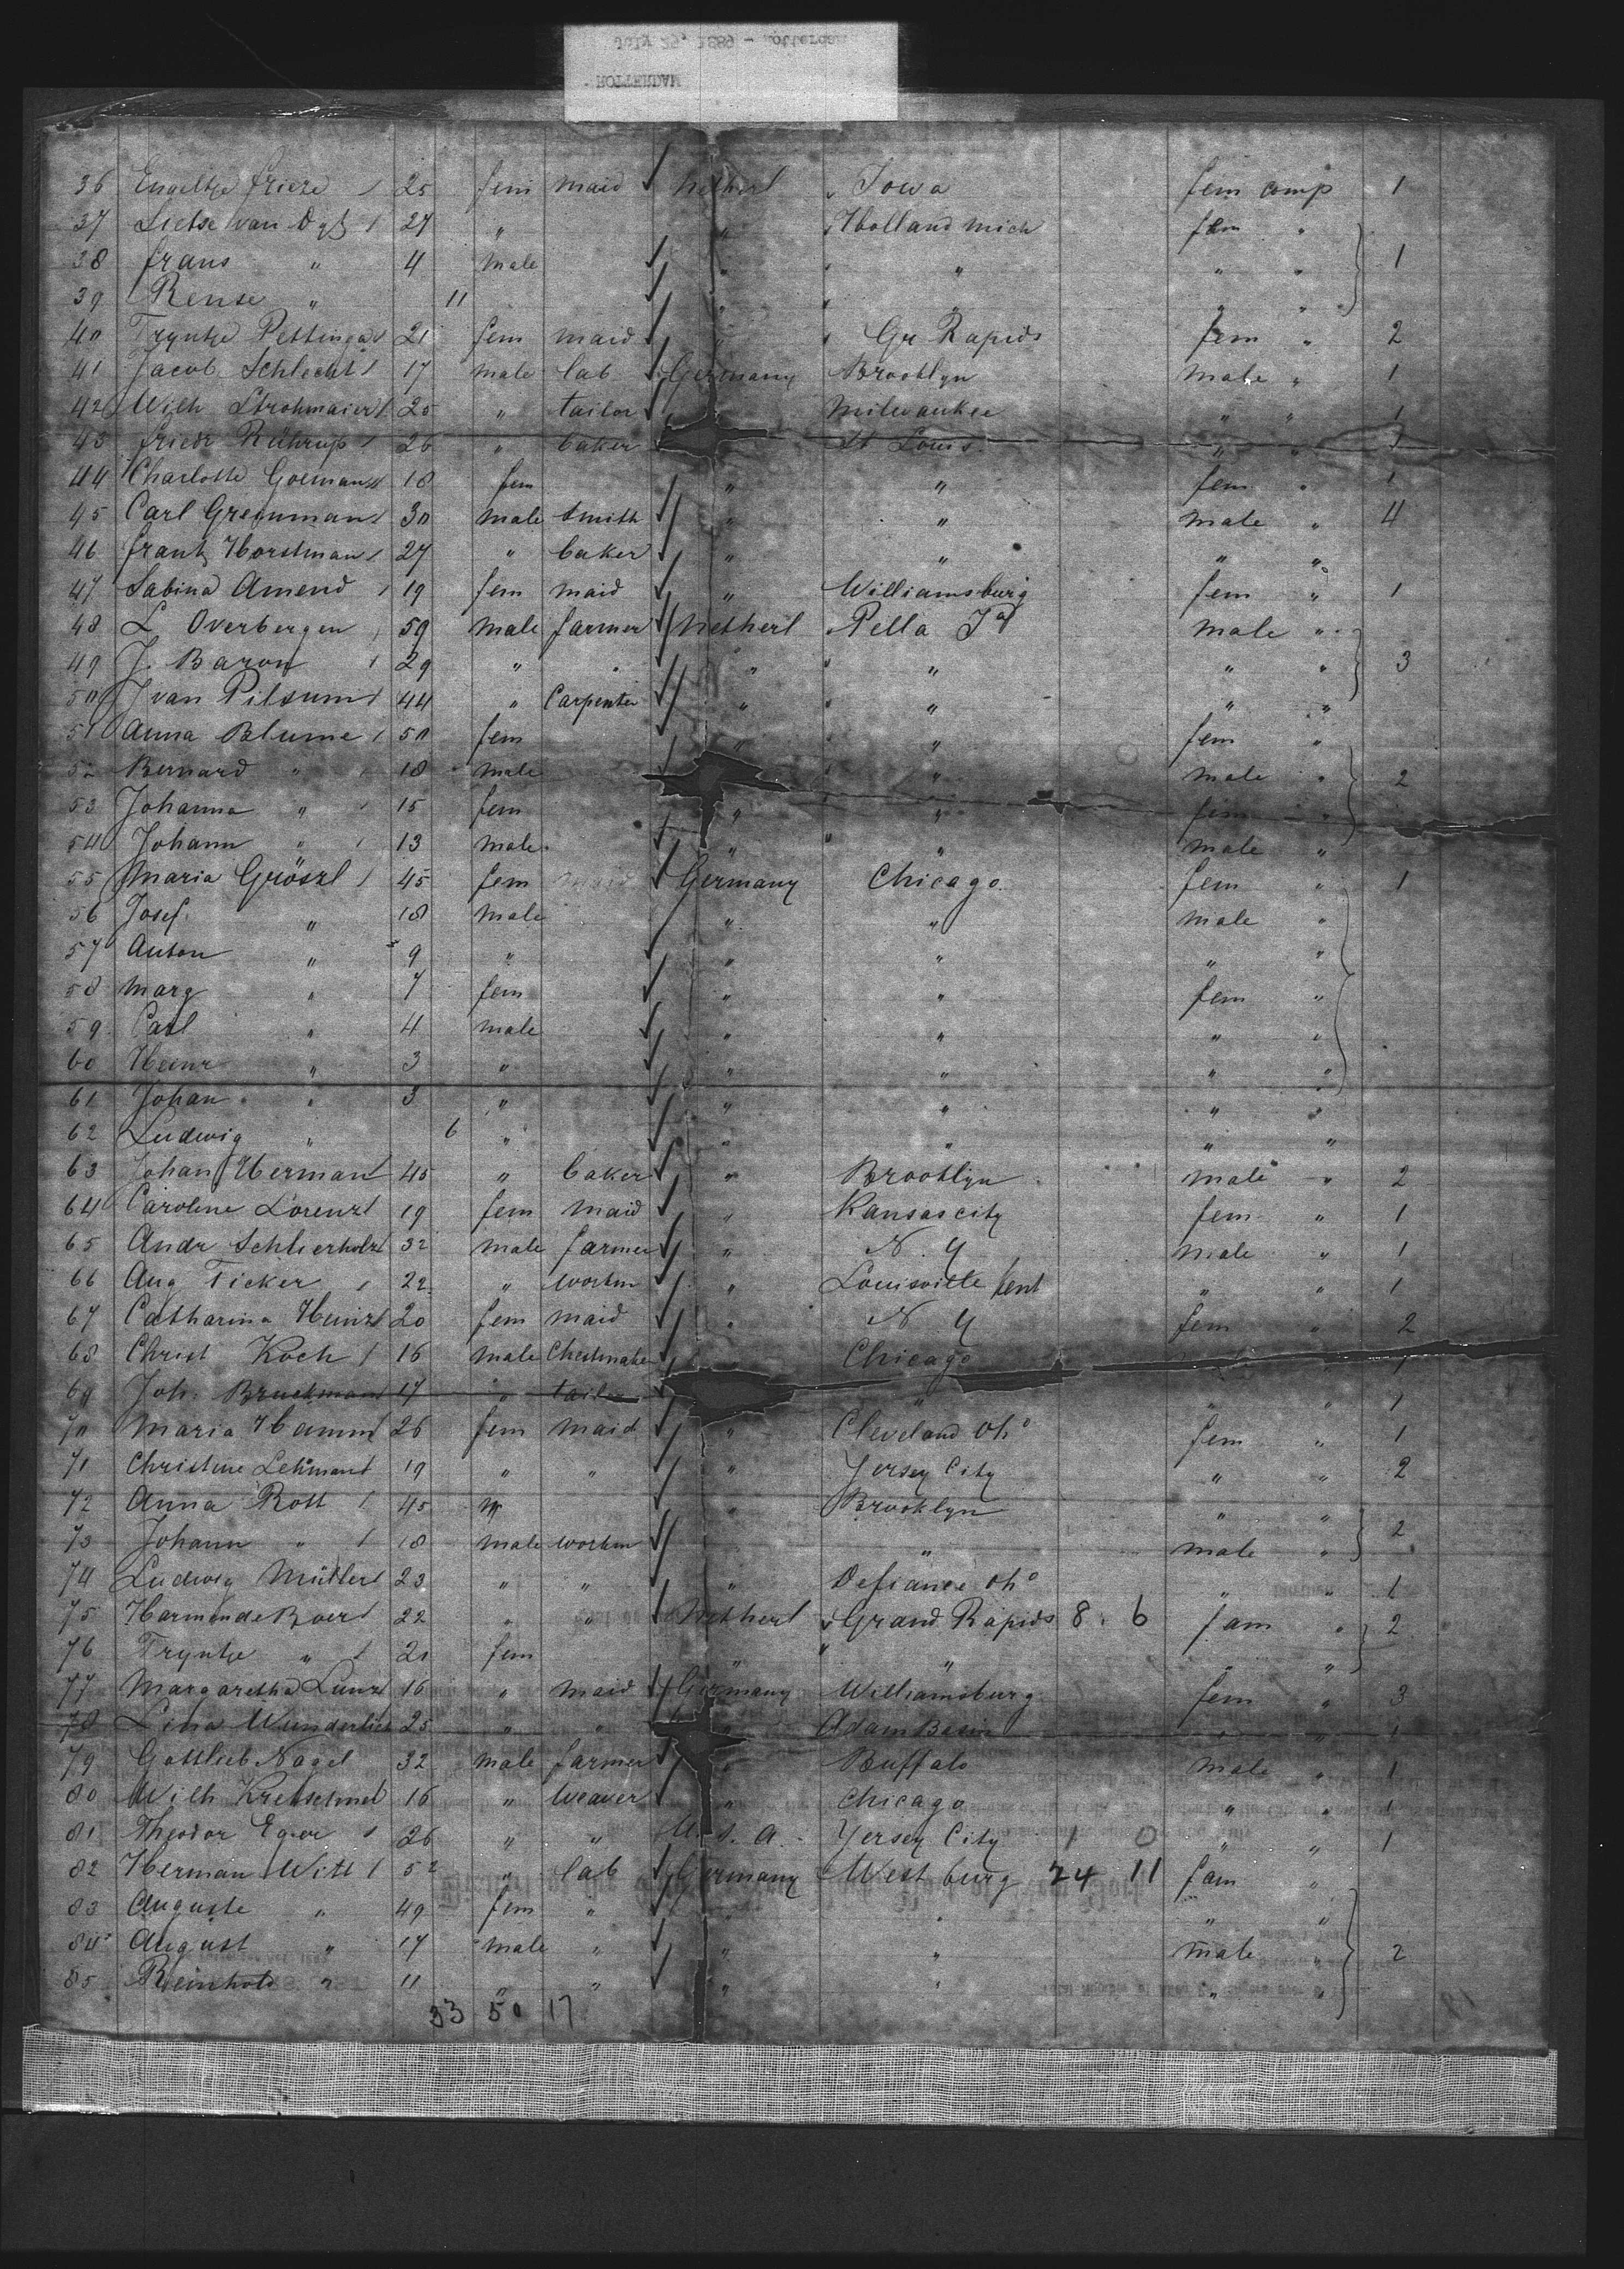 July 29, 1889 - Rotterdam
MAURETTON
36 Engeltje friere 25 fem maid Netherl " Iowa fem comp 1
37 Lietse van Dyk 27 " " Holland Mich fem "
38 frans " 4 male " " " " 1
39 Rense " 11 " " " "
40 Tryntje Pettinga 21 fem maid " Gr Rapids fem " 2
41 Jacob Schlecht 17 male lab Germany Brooklyn male " 1
42 Wilh Strohmaier 25 " tailor " Milwaukee " " 1
43 friedr Rührup 26 " baker St Louis " " 1
44 Charlotte Goemann 18 fem " " fem " 1
45 Carl Grennman 30 male Smith " " male " 4
46 frantz Horstman 27 " baker " " " "
47 Sabina Amend 19 fem maid " Williamsburg fem " 1
48 L Overbergen 59 male farmer Netherl Pella Ia male "
49 J. Baron 29 " " " " " " 3
50 J van Pilsum 44 " Carpenter " " " "
51 Anna Blume 50 fem " " fem "
52 Bernard " 18 male " male " 2
53 Johanna " 15 fem " " fem "
54 Johann " 13 male " " male "
55 Maria Gröszl 45 fem maid Germany Chicago fem " 1
56 Josef " 18 male " " male "
57 Anton " 9 " " " " "
58 Marg " 7 fem " " fem "
59 Carl " 4 male " " " "
60 Heinr " 3 " " " " "
61 Johan " 3 " " " " "
62 Ludwig " 6 " " " " "
63 Johan Herman 45 " baker " Brooklyn male " 2
64 Caroline Lorenz 19 fem maid " Kansas city fem " 1
65 Andr Schlierholz 32 male farmer " N. Y male " 1
66 Aug Ticker 22 " workm " Louisville Kent " " 1
67 Catharina Heinz 20 fem maid " N. Y fem " 2
68 Christ Koch 16 male Chestmaker Chicago " 1
69 Joh. Bruckmann 17 " tailor " " " 1
70 Maria Hamm 26 fem maid " Cleveland Oho fem " 1
71 Christine Lehmann 19 " " " Yersey City " " 2
72 Anna Rott 45 " " Brooklyn " "
73 Johann " 18 male workm " male " 2
74 Ludwig Müller 23 " " " Defiance Oho " " 1
75 Harmen de Boer 22 " " Netherl Grand Rapids 8 . 6 fam " 2
76 Tryntje " 21 fem " " " "
77 Margaretha Lunz 16 " maid Germany Williamsburg fem " 3
78 Lina Wunderlich 25 " " " Adam Basin " " 1
79 Gottlieb Nagel 32 male farmer " Buffalo male " 1
80 Wilh Kretschmel 16 " Weaver " Chicago " " 1
81 Theodor Eger 26 " " U. S. A. Yersey City 1 0 " " 1
82 Herman Witt 52 " lab Germany West burg 24 11 fam "
83 Auguste " 49 fem " " " " "
84 August " 17 male " " " male " 2
85 Reinhold " 11 " " " " " "
33 50 17